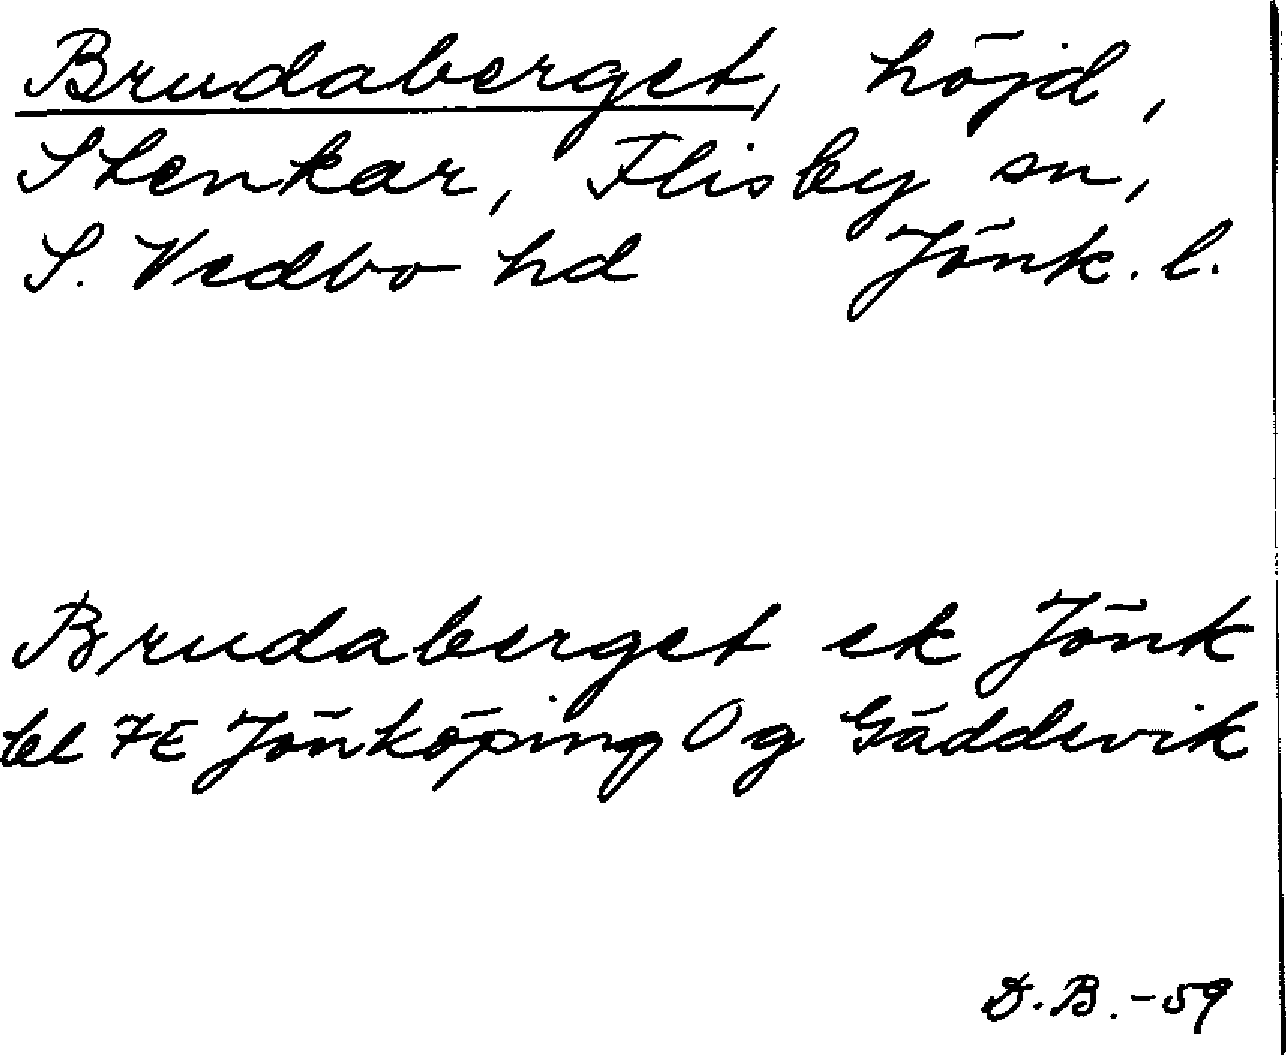 Brudaberget, höjd,
Stenkar, Flisby sn,
S. Vedbo hd Jönk. l.
Brudaberget ek Jönk
bl 7E Jönköping Og Gäddevik
D.B. -59